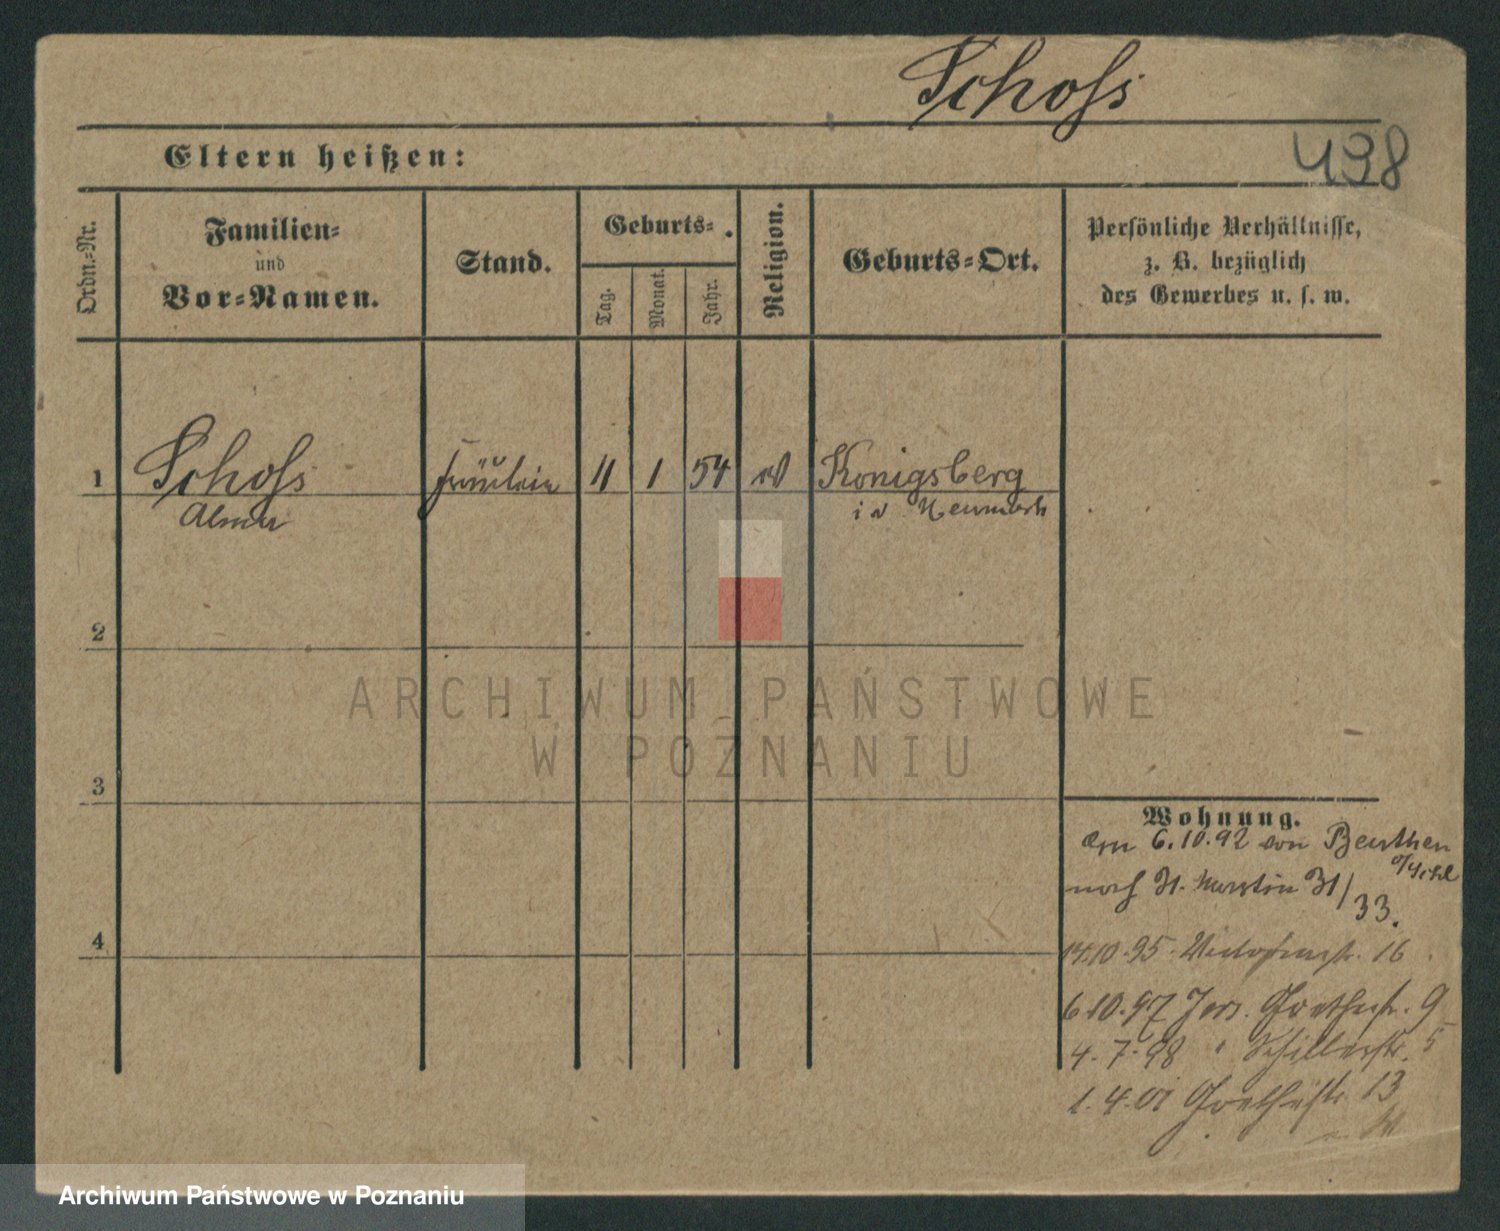 Schoß
498
Eltern heißen:
Ordn.-Nr.
Familien-
und
Vor-Namen.
Stand.
Geburts-
Tag.
Monat.
Jahr.
Religion.
Geburts-Ort.
Persönliche Verhältnisse,
z. B. bezüglich
des Gewerbes u. s. w.
1
Schoß
Fräulein
11
1
54
Königsberg
Alma
i N Neumark
2
ARCHIWUM PAŃSTWOWE
W POZNANIU
3
Wohnung.
am 6.10.92 von Beuthen
o/Schl
nach St. Martin 31/
33.
4
14.10.95. Victoriastr. 16
6.10.97 Jers. Goethestr. 9
4.7.98 " Schillerstr. 5
1.4.01 Goethestr. 13
Archiwum Państwowe w Poznaniu